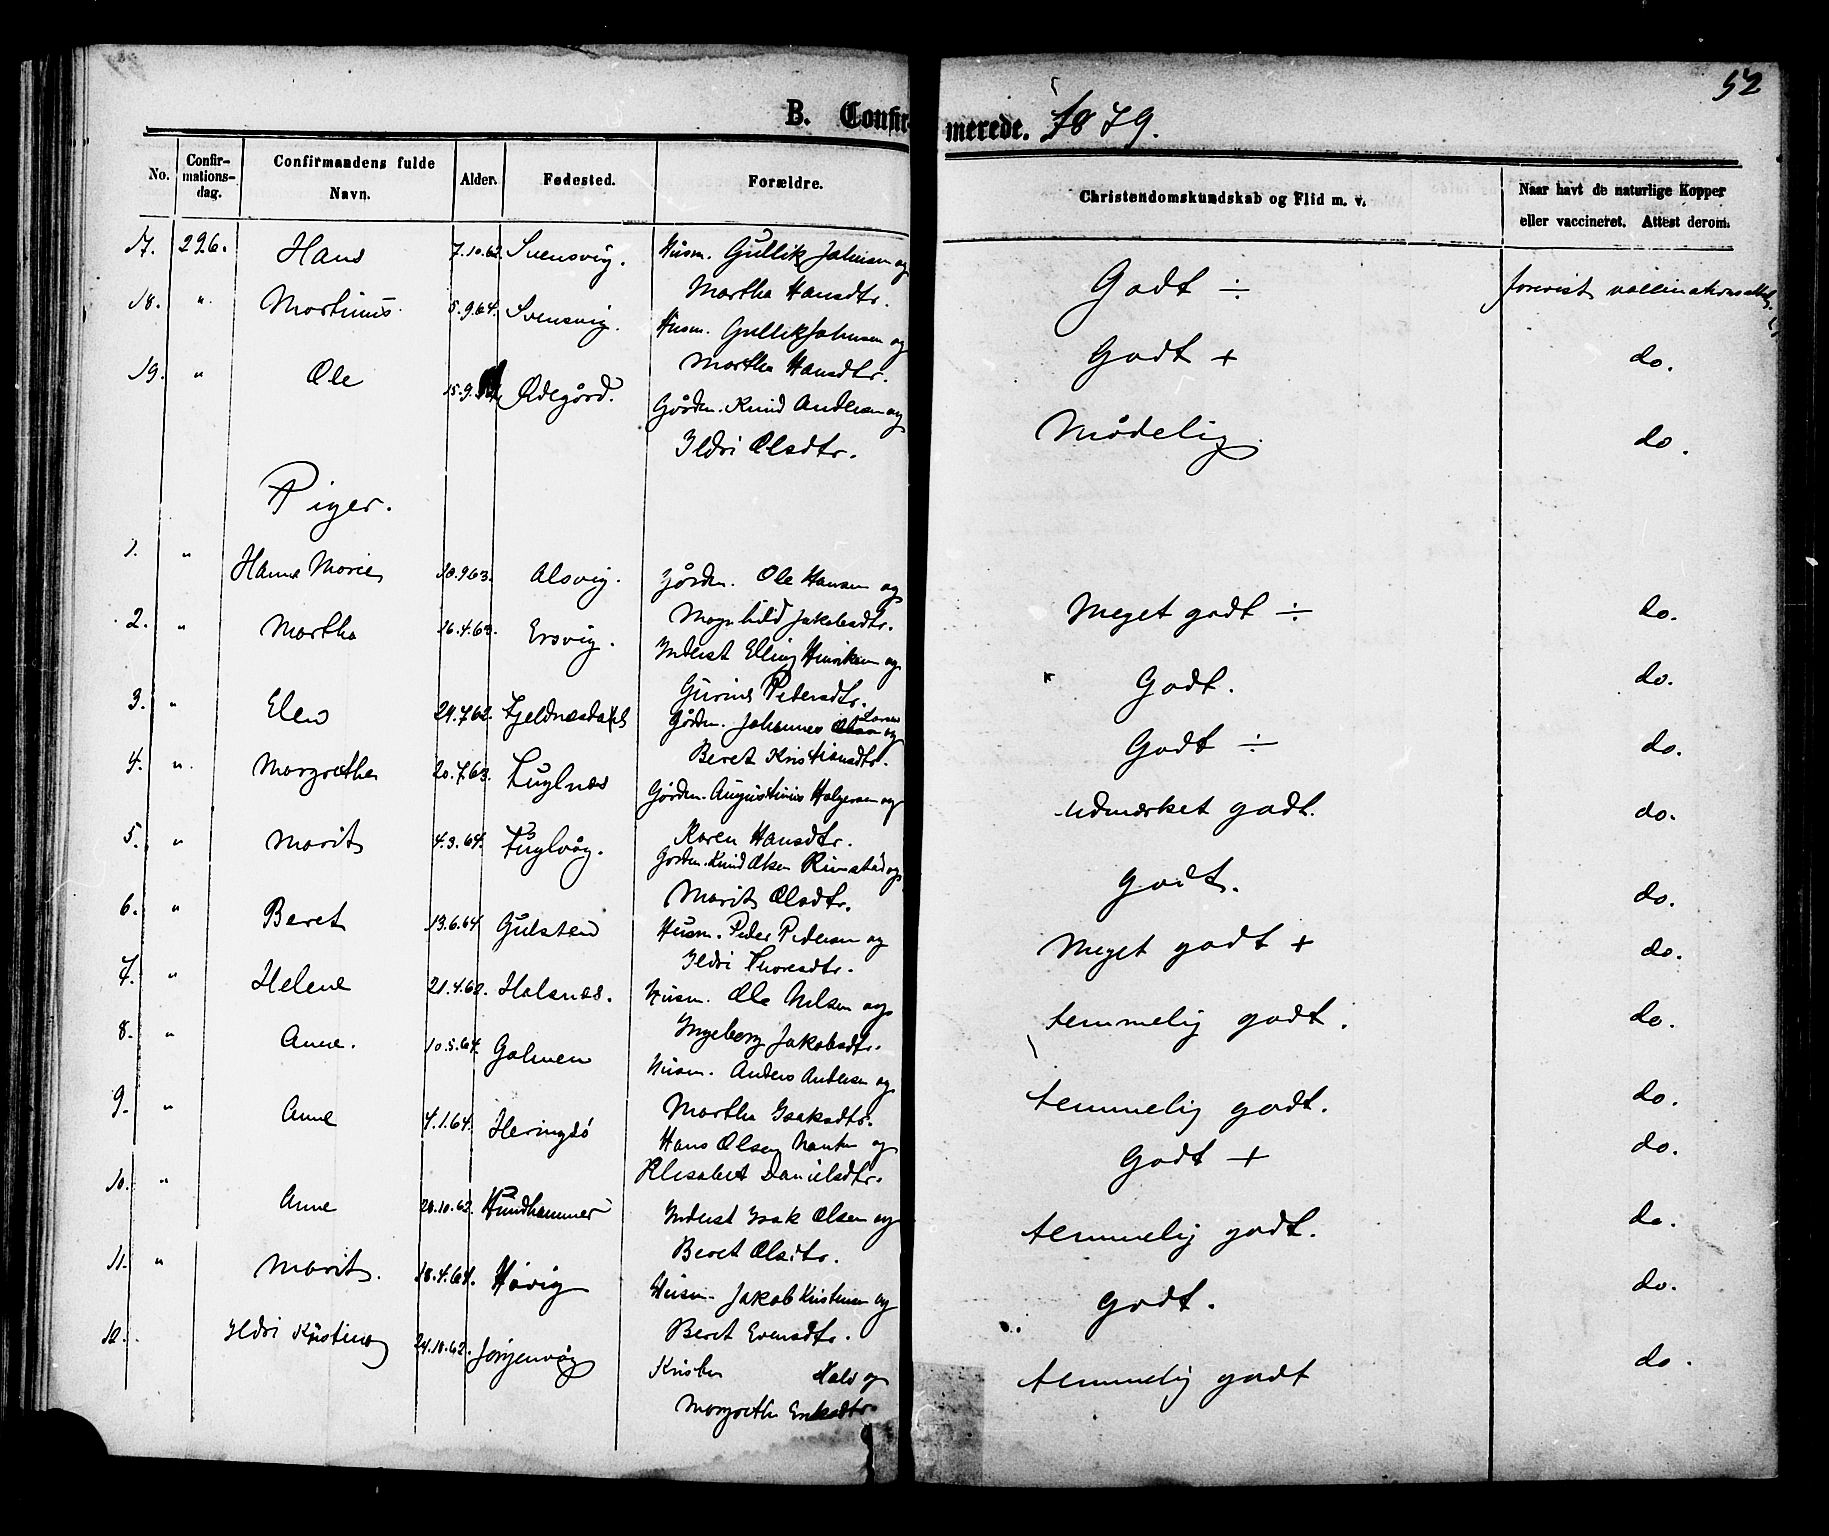 52
B. Confirmerede. 1879.
No. Confirmationsdag. Confirmandens fulde Navn. Alder. Fødested. Forældre. Christendomskundskab og Flid m. v. Naar havt de naturlige Kopper eller vaccineret. Attest derom.
17. 29 6. Hans 7.10.62. Svensvig. Husm. Gullik Johnsen og
Martha Hansdtr. Godt ÷ forevist
18. " Martinus 5.9.64. Svensvig. Husm. Gullik Johnsen og
Martha Hansdtr. Godt + do.
19. " Ole 15.9. Ødegård. Gårdm. Knud Andersen og
Ildri Olsdtr. Mådelig. do.
Piger.
1. " Hanna Marie 10.9.63. Alsvig. Gårdm. Ole Hansen og
Magnhild Jakobsdtr. Meget godt ÷ do.
2. " Martha 16.4.63. Ersvig. Inderst Elling Henriksen og
Gurine Pedersdtr. Godt. do.
3. " Elen 29.7.62. Gårdm. Johannes Larsen og
Beret Kristiansdtr. Godt ÷ do.
4. " Margretha 20.7.63. Fuglnæs Gårdm. Augustinus Holgersen og
Karen Hansdtr. Udmærket godt. do.
5. " Marit 4.3.64. Fuglvåg. Gårdm. Knud Olsen Rimstad og
Marit Olsdtr. Godt. do.
6. " Beret 13.6.64 Gulsten Husm. Peder Pedersen og
Ildri Thoresdtr. Meget godt + do.
7. " Helene 21.4.62. Halsnæs. Husm. Ole Nilsen og
Ingeborg Jakobsdtr. temmelig godt. do.
8. " Anne. 10.5.64. Galmen Husm. Anders Andersen og
Martha Isaksdtr. temmelig godt. do.
9. " Anne 4.1.64. Heringsø Hans Olsen og
Elisabet Danielsdtr. Godt + do.
10. " Anne 28.10.62. Hundhammer Inderst Isak Olsen og
Beret Olsdtr. temmelig godt. do.
11. " Marit. 18.4.64. Håvig Husm. Jakob Kristensen og
Beret Evensdtr. Godt. do.
12. Ildri Kristine 24.10.62. Jørgenvåg Hals og
Margrethe Eriksdtr. temmelig godt do.